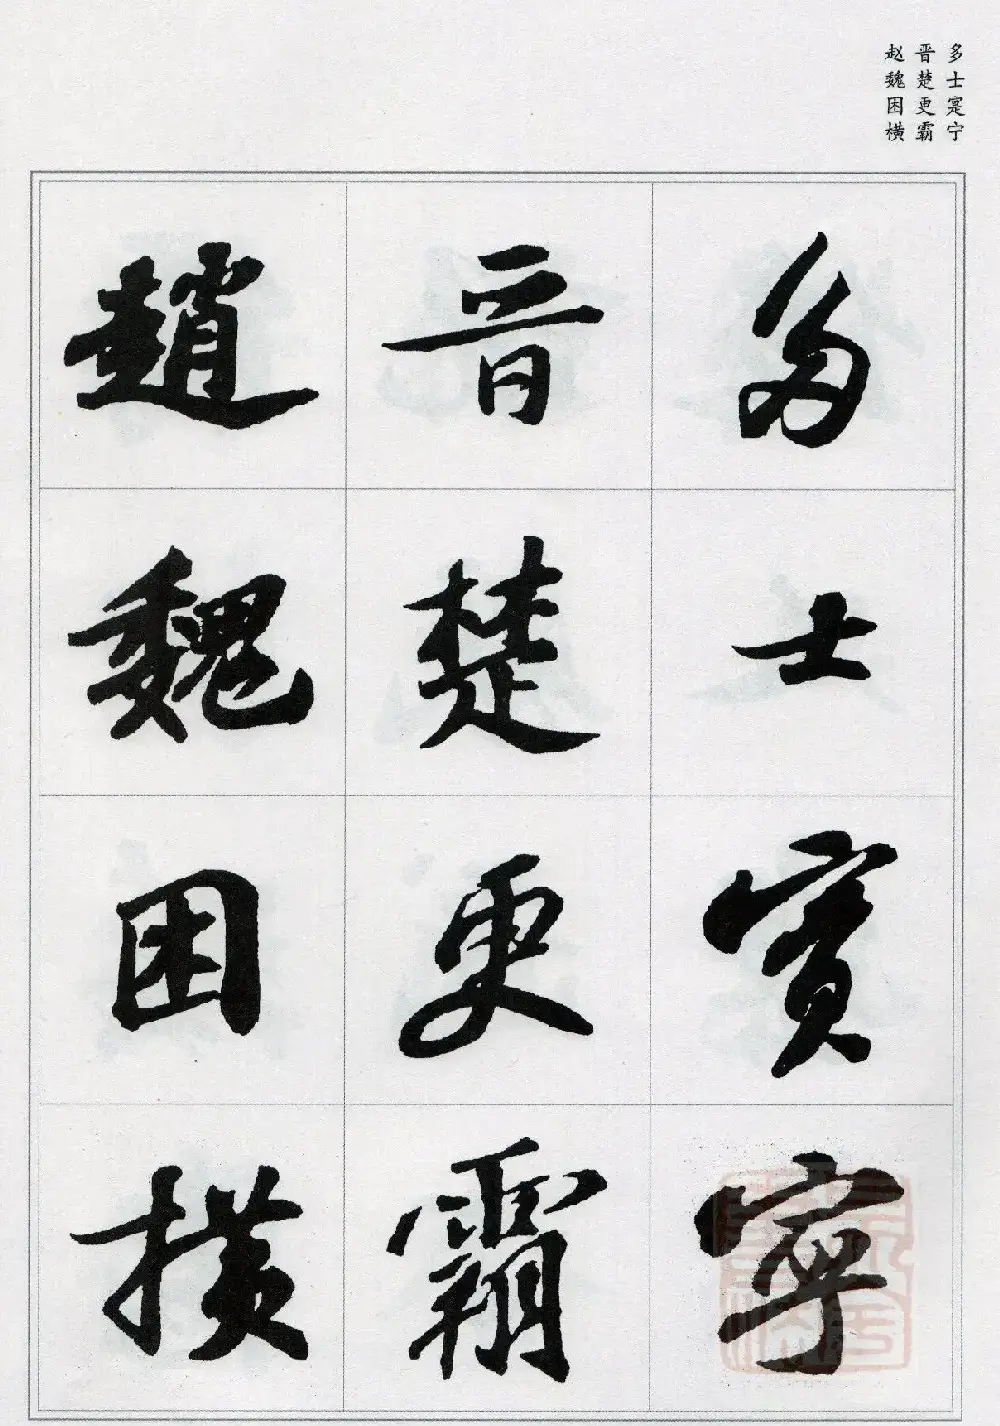 多士寔宁
晋楚更霸
赵魏困横
多士寔寧
晉楚更霸
趙魏困横